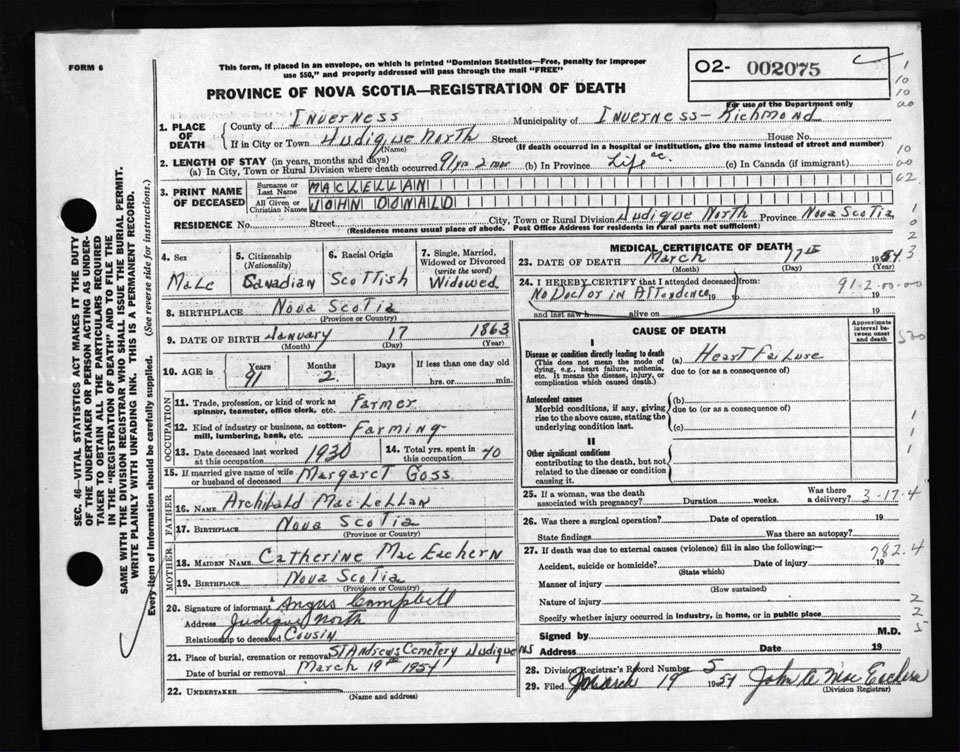 FORM 6
This form, if placed in an envelope, on which is printed "Dominion Statistics—Free, penalty for improper
use $50," and properly addressed will pass through the mail "FREE"
O2- 002075
PROVINCE OF NOVA SCOTIA—REGISTRATION OF DEATH
For use of the Department only
1. PLACE OF DEATH
County of Inverness Municipality of Inverness-Richmond
If in City or Town Judique North Street House No.
(Name) (If death occurred in a hospital or institution, give the name instead of street and number)
2. LENGTH OF STAY (in years, months and days)
(a) In City, Town or Rural Division where death occurred 91 yrs 2 mos (b) In Province Life (c) In Canada (if immigrant)
3. PRINT NAME OF DECEASED
Surname or Last Name MACLELLAN
All Given or Christian Names JOHN DONALD
RESIDENCE No. Street City, Town or Rural Division Judique North Province Nova Scotia
(Residence means usual place of abode. Post Office Address for residents in rural parts not sufficient)
4. Sex Male
5. Citizenship (Nationality) Canadian
6. Racial Origin Scottish
7. Single, Married, Widowed or Divorced (write the word) Widowed
8. BIRTHPLACE Nova Scotia
(Province or Country)
9. DATE OF BIRTH January 17 1863
(Month) (Day) (Year)
10. AGE in Years 91 Months 2 Days If less than one day hrs. or min.
OCCUPATION
11. Trade, profession, or kind of work as spinner, teamster, office clerk, etc. Farmer
12. Kind of industry or business, as cotton-mill, lumbering, bank, etc. Farming
13. Date deceased last worked at this occupation 1930
14. Total yrs. spent in this occupation 70
15. If married give name of wife or husband of deceased Margaret Goss
FATHER
16. NAME Archibald MacLellan
17. BIRTHPLACE Nova Scotia
(Province or Country)
MOTHER
18. MAIDEN NAME Catherine MacEachern
19. BIRTHPLACE Nova Scotia
(Province or Country)
20. Signature of informant Angus Campbell
Address Judique North
Relationship to deceased Cousin
21. Place of burial, cremation or removal St Andrews Cemetery Judique NS
Date of burial or removal March 19th 1954
22. UNDERTAKER
(Name and address)
MEDICAL CERTIFICATE OF DEATH
23. DATE OF DEATH March 17th 19
(Month) (Day) (Year)
24. I HEREBY CERTIFY that I attended deceased from:
No Doctor in Attendence 19
and last saw h alive on 19
91-2-00-00
CAUSE OF DEATH
Approximate interval between onset and death
I
Disease or condition directly leading to death
(This does not mean the mode of dying, e.g., heart failure, asthenia, etc. It means the disease, injury, or complication which caused death.)
(a) Heart Failure
due to (or as a consequence of)
Antecedent causes
Morbid conditions, if any, giving rise to the above cause, stating the underlying condition last.
(b)
due to (or as a consequence of)
(c)
II
Other significant conditions
contributing to the death, but not related to the disease or condition causing it.
25. If a woman, was the death associated with pregnancy? Duration weeks. Was there a delivery? 3-17-4
26. Was there a surgical operation? Date of operation 19
State findings Was there an autopsy?
27. If death was due to external causes (violence) fill in also the following:
782.4
Accident, suicide or homicide? Date of injury 19
(State which)
Manner of injury
(How sustained)
Nature of injury
Specify whether injury occurred in industry, in home, or in public place
Signed by M.D.
Address Date 19
28. Division Registrar's Record Number 5
29. Filed March 19 1954 John A MacEachern
(Division Registrar)
SEC. 46—VITAL STATISTICS ACT MAKES IT THE DUTY
OF THE UNDERTAKER OR PERSON ACTING AS UNDER-
TAKER TO OBTAIN ALL THE PARTICULARS REQUIRED
IN THE "REGISTRATION OF DEATH" AND TO FILE THE
SAME WITH THE DIVISION REGISTRAR WHO SHALL ISSUE THE BURIAL PERMIT.
WRITE PLAINLY WITH UNFADING INK. THIS IS A PERMANENT RECORD.
Every item of information should be carefully supplied. (See reverse side for instructions.)